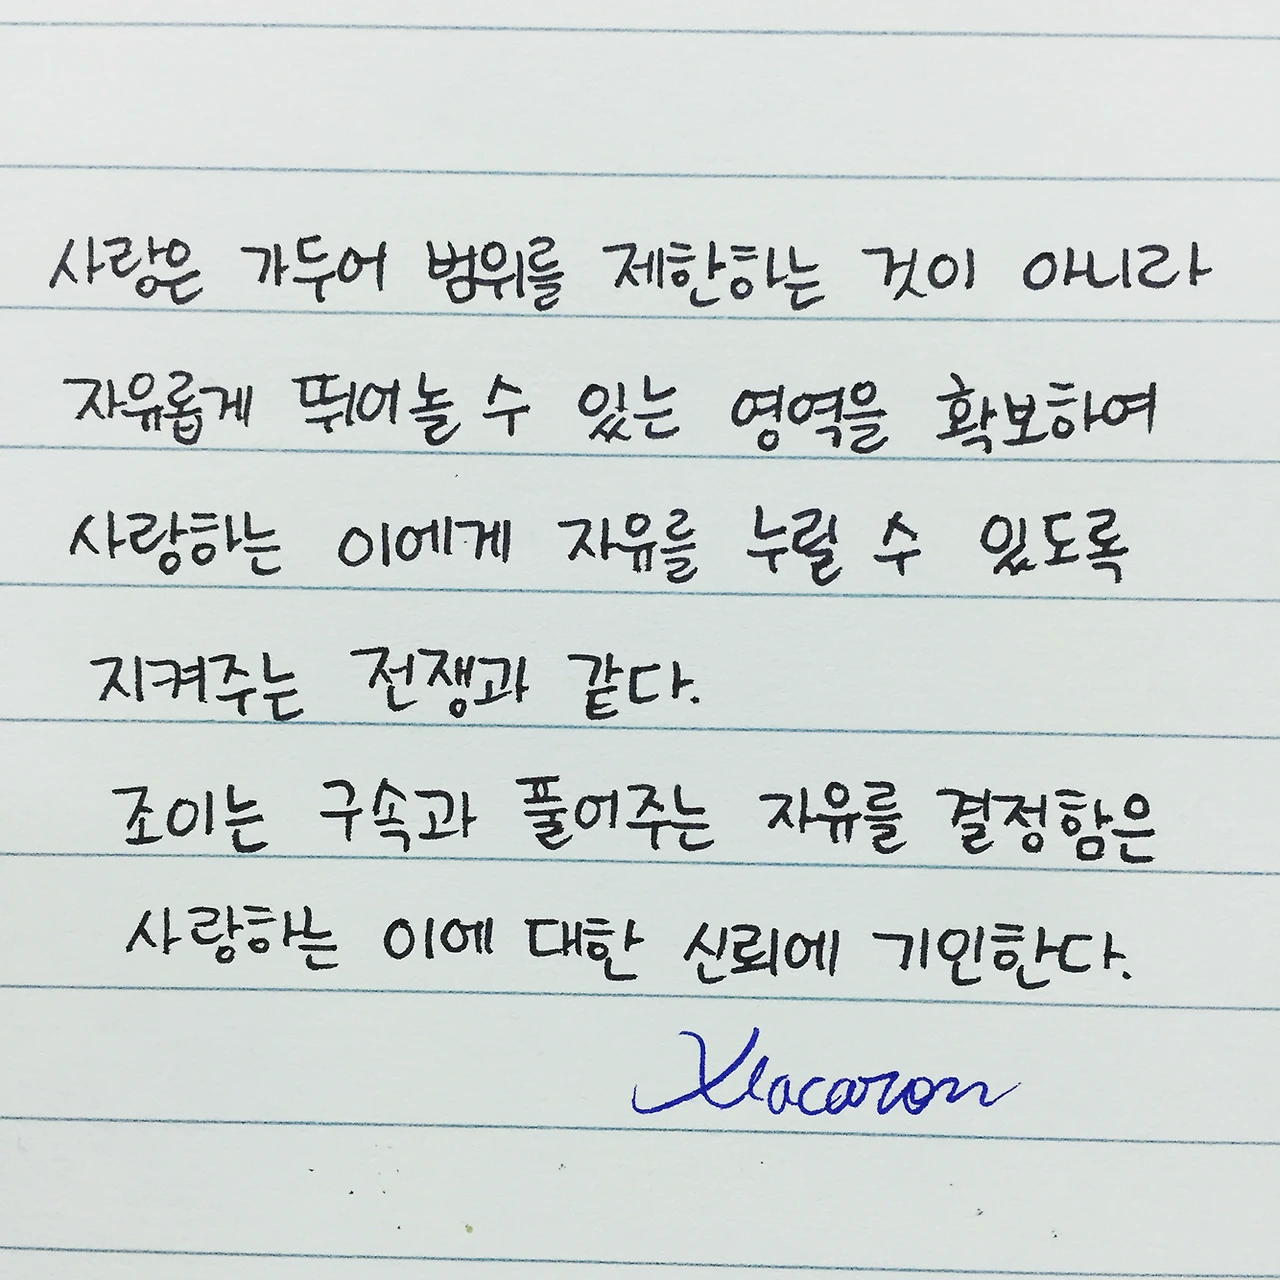 사랑은 가두어 범위를 제한하는 것이 아니라
자유롭게 뛰어놀 수 있는 영역을 확보하여
사랑하는 이에게 자유를 누릴 수 있도록
지켜주는 전쟁과 같다.
조이는 구속과 풀어주는 자유를 결정함은
사랑하는 이에 대한 신뢰에 기인한다.